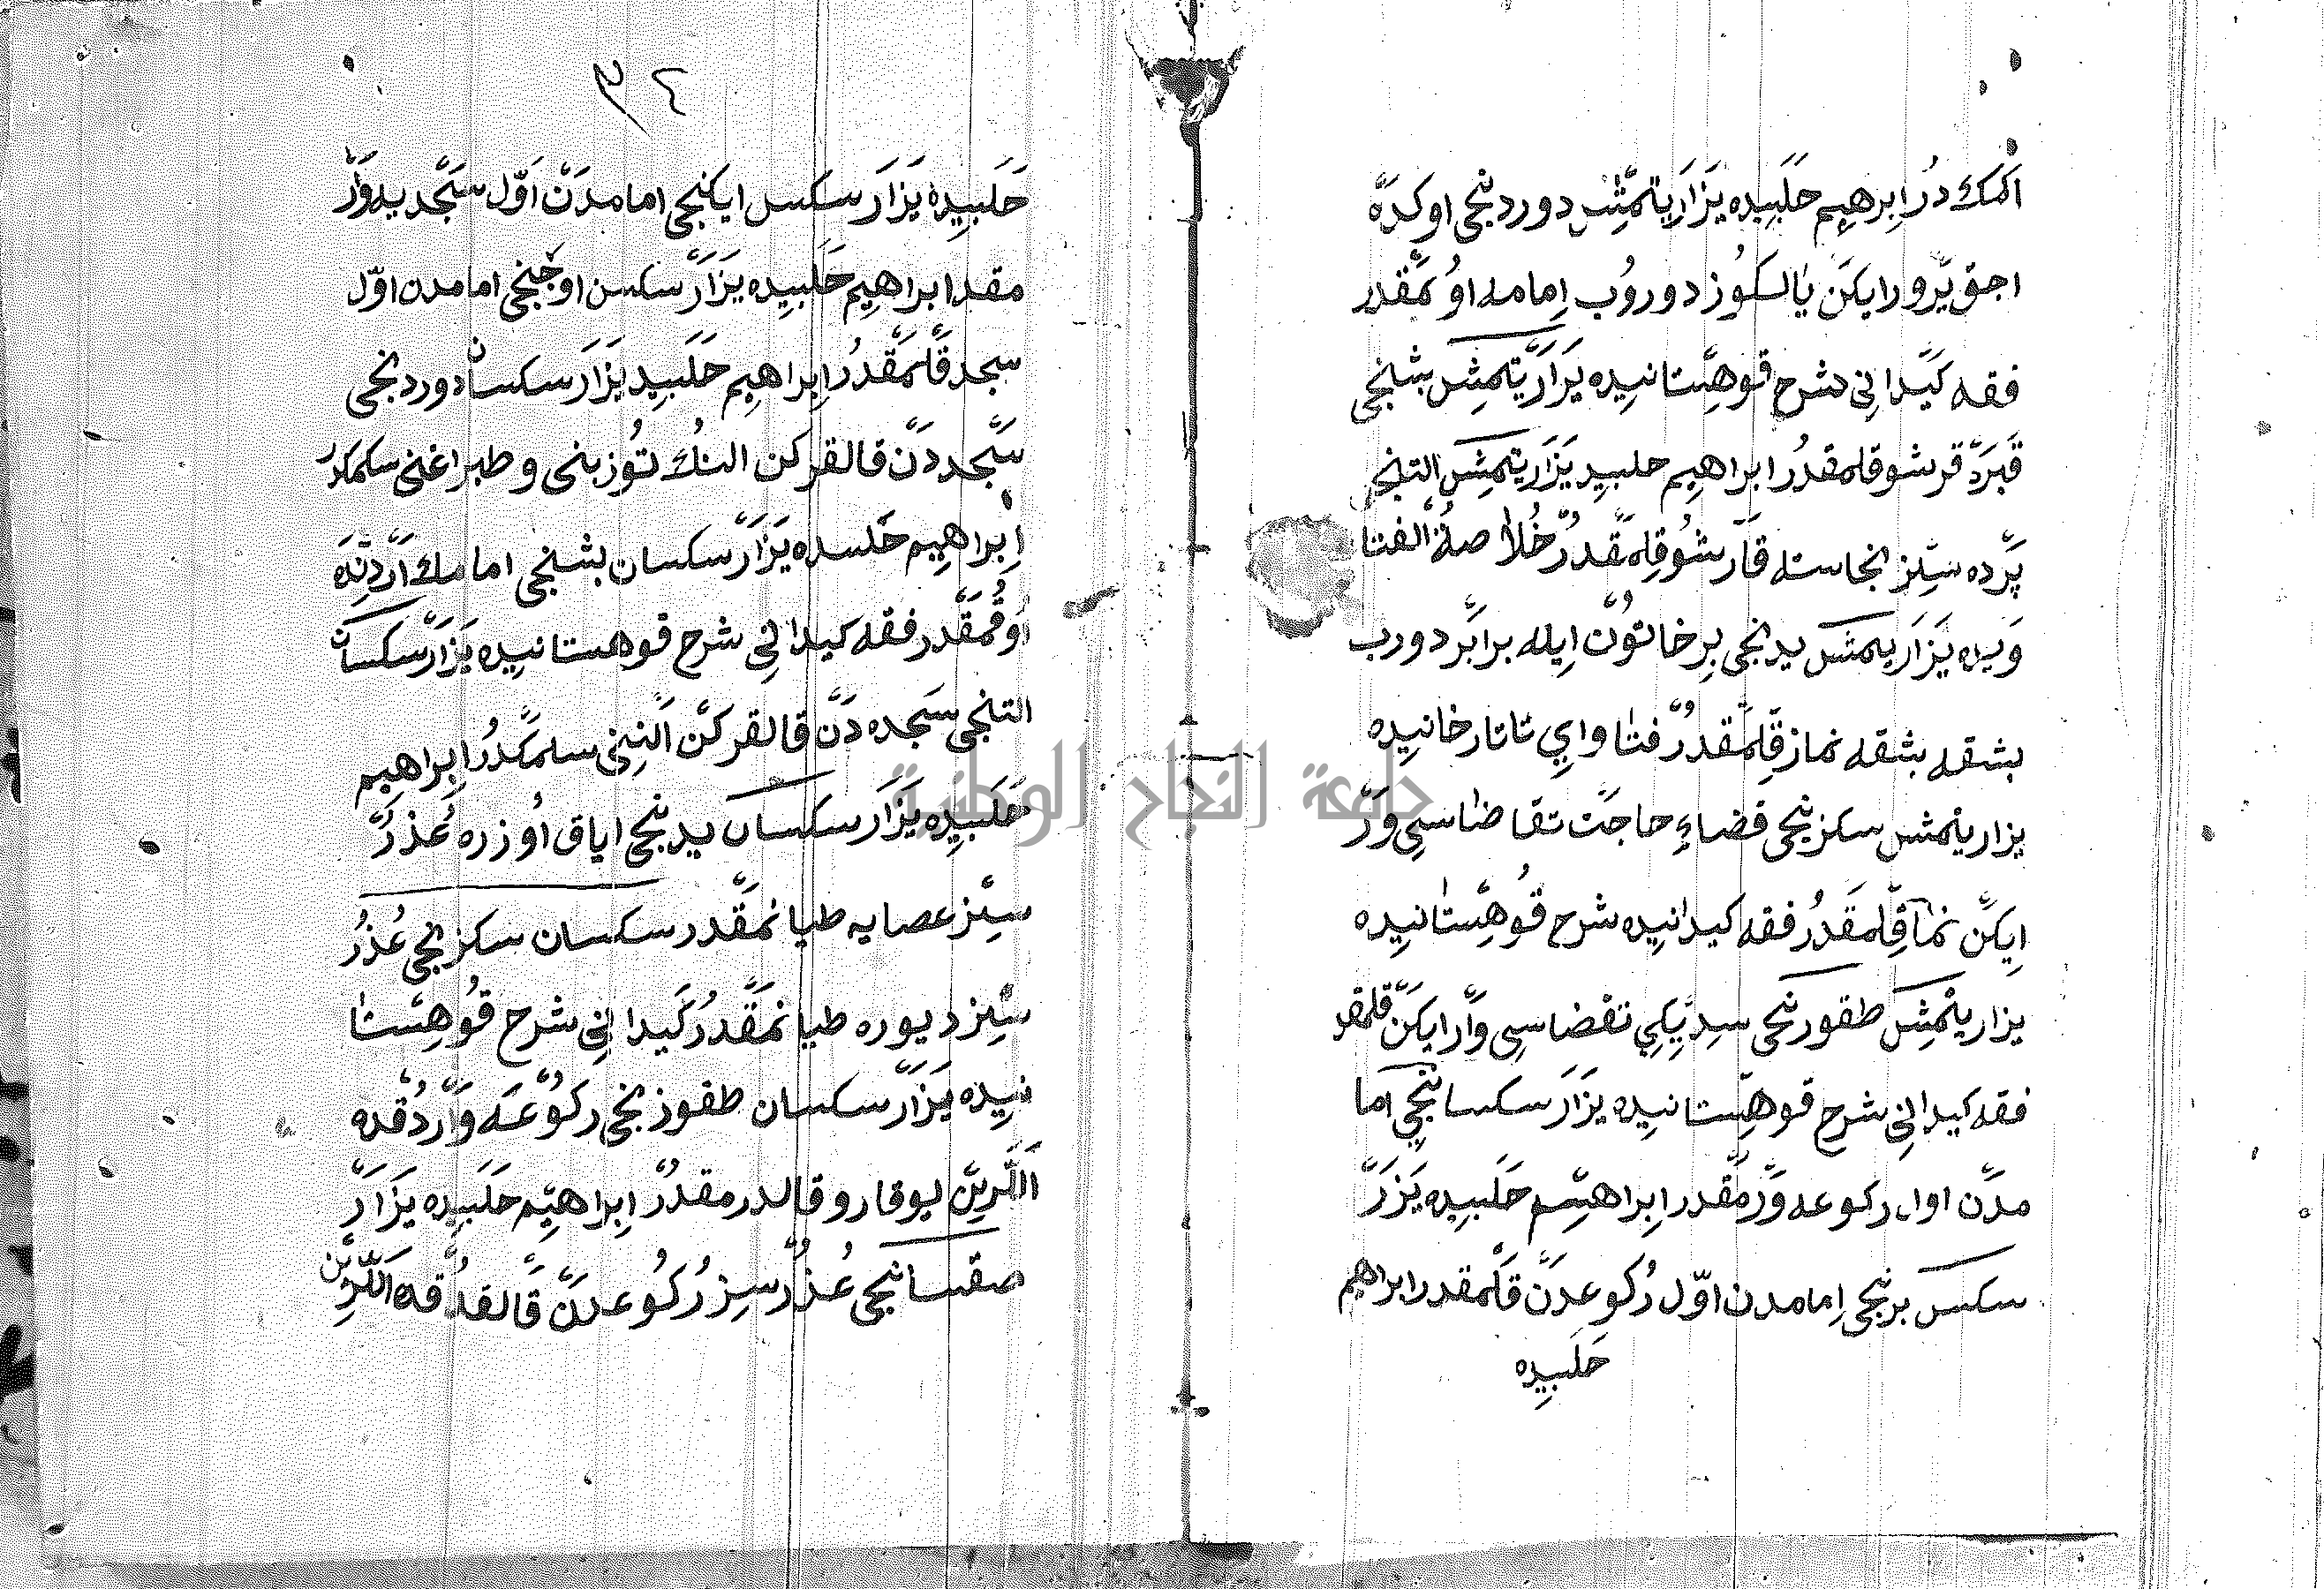 اكمك در ابرهيم حلبيده يزار يتمش دوردنجى اوكده
اجق ير وار ايكن يالكوز دوروب امامه اويمقدر
فقه كيدانى شرح قوهستانيده يزار يتمش بشنجى
قبرد قرشو قلمقدر ابراهيم حلبيد يزار يتمش التنجى
پرده سز نجاسته قارشو قلمقدر خلاصة الفتا
ويده يزار يتمش يدنجى بر خاتون ايله برابر دورب
بشقه بشقه نماز قلمقدر فتاواي تاتارخانيده
يزار يتمش سكزنجى قضاء حاجت تقاضاسى وار
ايكن نماز قلمقدر فقه كيدانيده شرح قوهستانيده
يزار يتمش طقوزنجى سديكى تقضاسى وار ايكن قلمقدر
فقه كيدانى شرح قوهستانيده يزار سكسانجى اما
مدن اول ركوعه ورمقدر ابراهيم حلبيده يزر
سكسن برنجى امامدن اول ركوعدن قلمقدر ابراهيم
حلبيده
٣٤
حلبيده يزار سكسن ايكنجى امامدن اول سجديه وار
مقدر ابراهيم حلبيده يزار سكسن اوجنجى امامدن اول
سجد قلمقدر ابراهيم حلبيد يزار سكسان دوردنجى
سجددن قالقركن النك توزينى وطبراغنى سلمكدر
ابراهيم حلبيده يزار سكسان بشنجى امامك اردنده
اوقمقدر فقه كيدانى شرح قوهستانيده يزار سكسان
التنجى سجده دن قالقركن الننى سلمكدر ابراهيم
حلبيده يزار سكسان يدنجى اياق اوزره عذر
سز عصايه طيانمقدر سكسان سكزنجى عذر
سز ديوره طيانمقدر كيدانى شرح قوهستا
نيده يزار سكسان طقوزنجى ركوعه واردقده
اللرين يوقارو قالدرمقدر ابراهيم حلبيده يزار
طقسانجى عذر سز ركوعدن قالقدقده اللرين
جامعة النجاح الوطنية